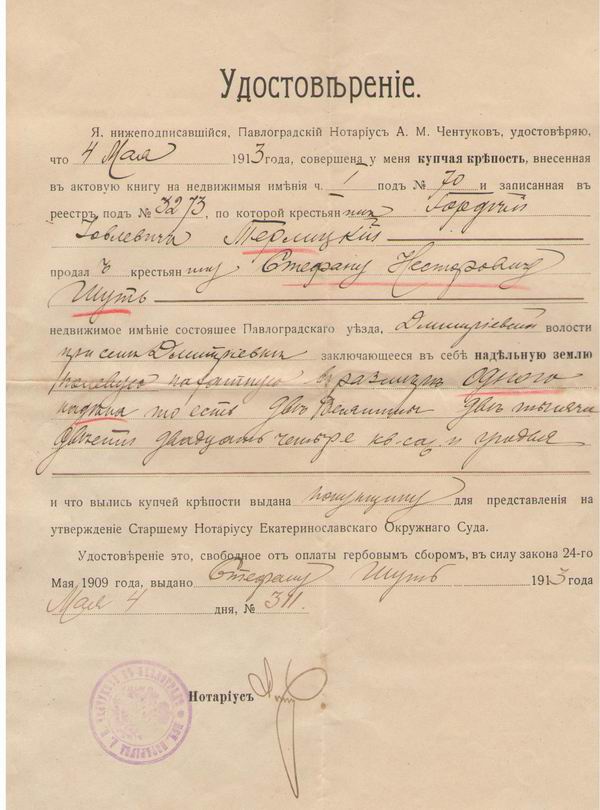 Удостовѣренiе.
Я, нижеподписавшiйся, Павлоградскiй Нотарiусъ А. М. Чентуковъ, удостовѣряю,
что 4 Мая 1913 года, совершена у меня купчая крѣпость, внесенная
въ актовую книгу на недвижимыя имѣнiя ч. I подъ № 70 и записанная въ
реестръ подъ № 3273, по которой крестьянинъ Гордѣй
Iовлевичъ Терлицкiй
продалъ крестьянину Стефану Нестеровичу
Шуть
недвижимое имѣнiе состоящее Павлоградскаго уѣзда, Дмитрiевской волости
при селѣ Дмитрiевкѣ заключающееся въ себѣ надѣльную землю
полевую пахатную въ размѣрѣ одного
надѣла то есть двѣ десятины двѣ тысячи
двѣсти двадцать четыре кв. саж.
и что вылись купчей крѣпости выдана покупщику для представленiя на
утвержденiе Старшему Нотарiусу Екатеринославскаго Окружнаго Суда.
Удостовѣренiе это, свободное отъ оплаты гербовымъ сборомъ, въ силу закона 24-го
Мая 1909 года, выдано Стефану Шуть 1913 года
Мая 4 дня, № 311.
Нотарiусъ